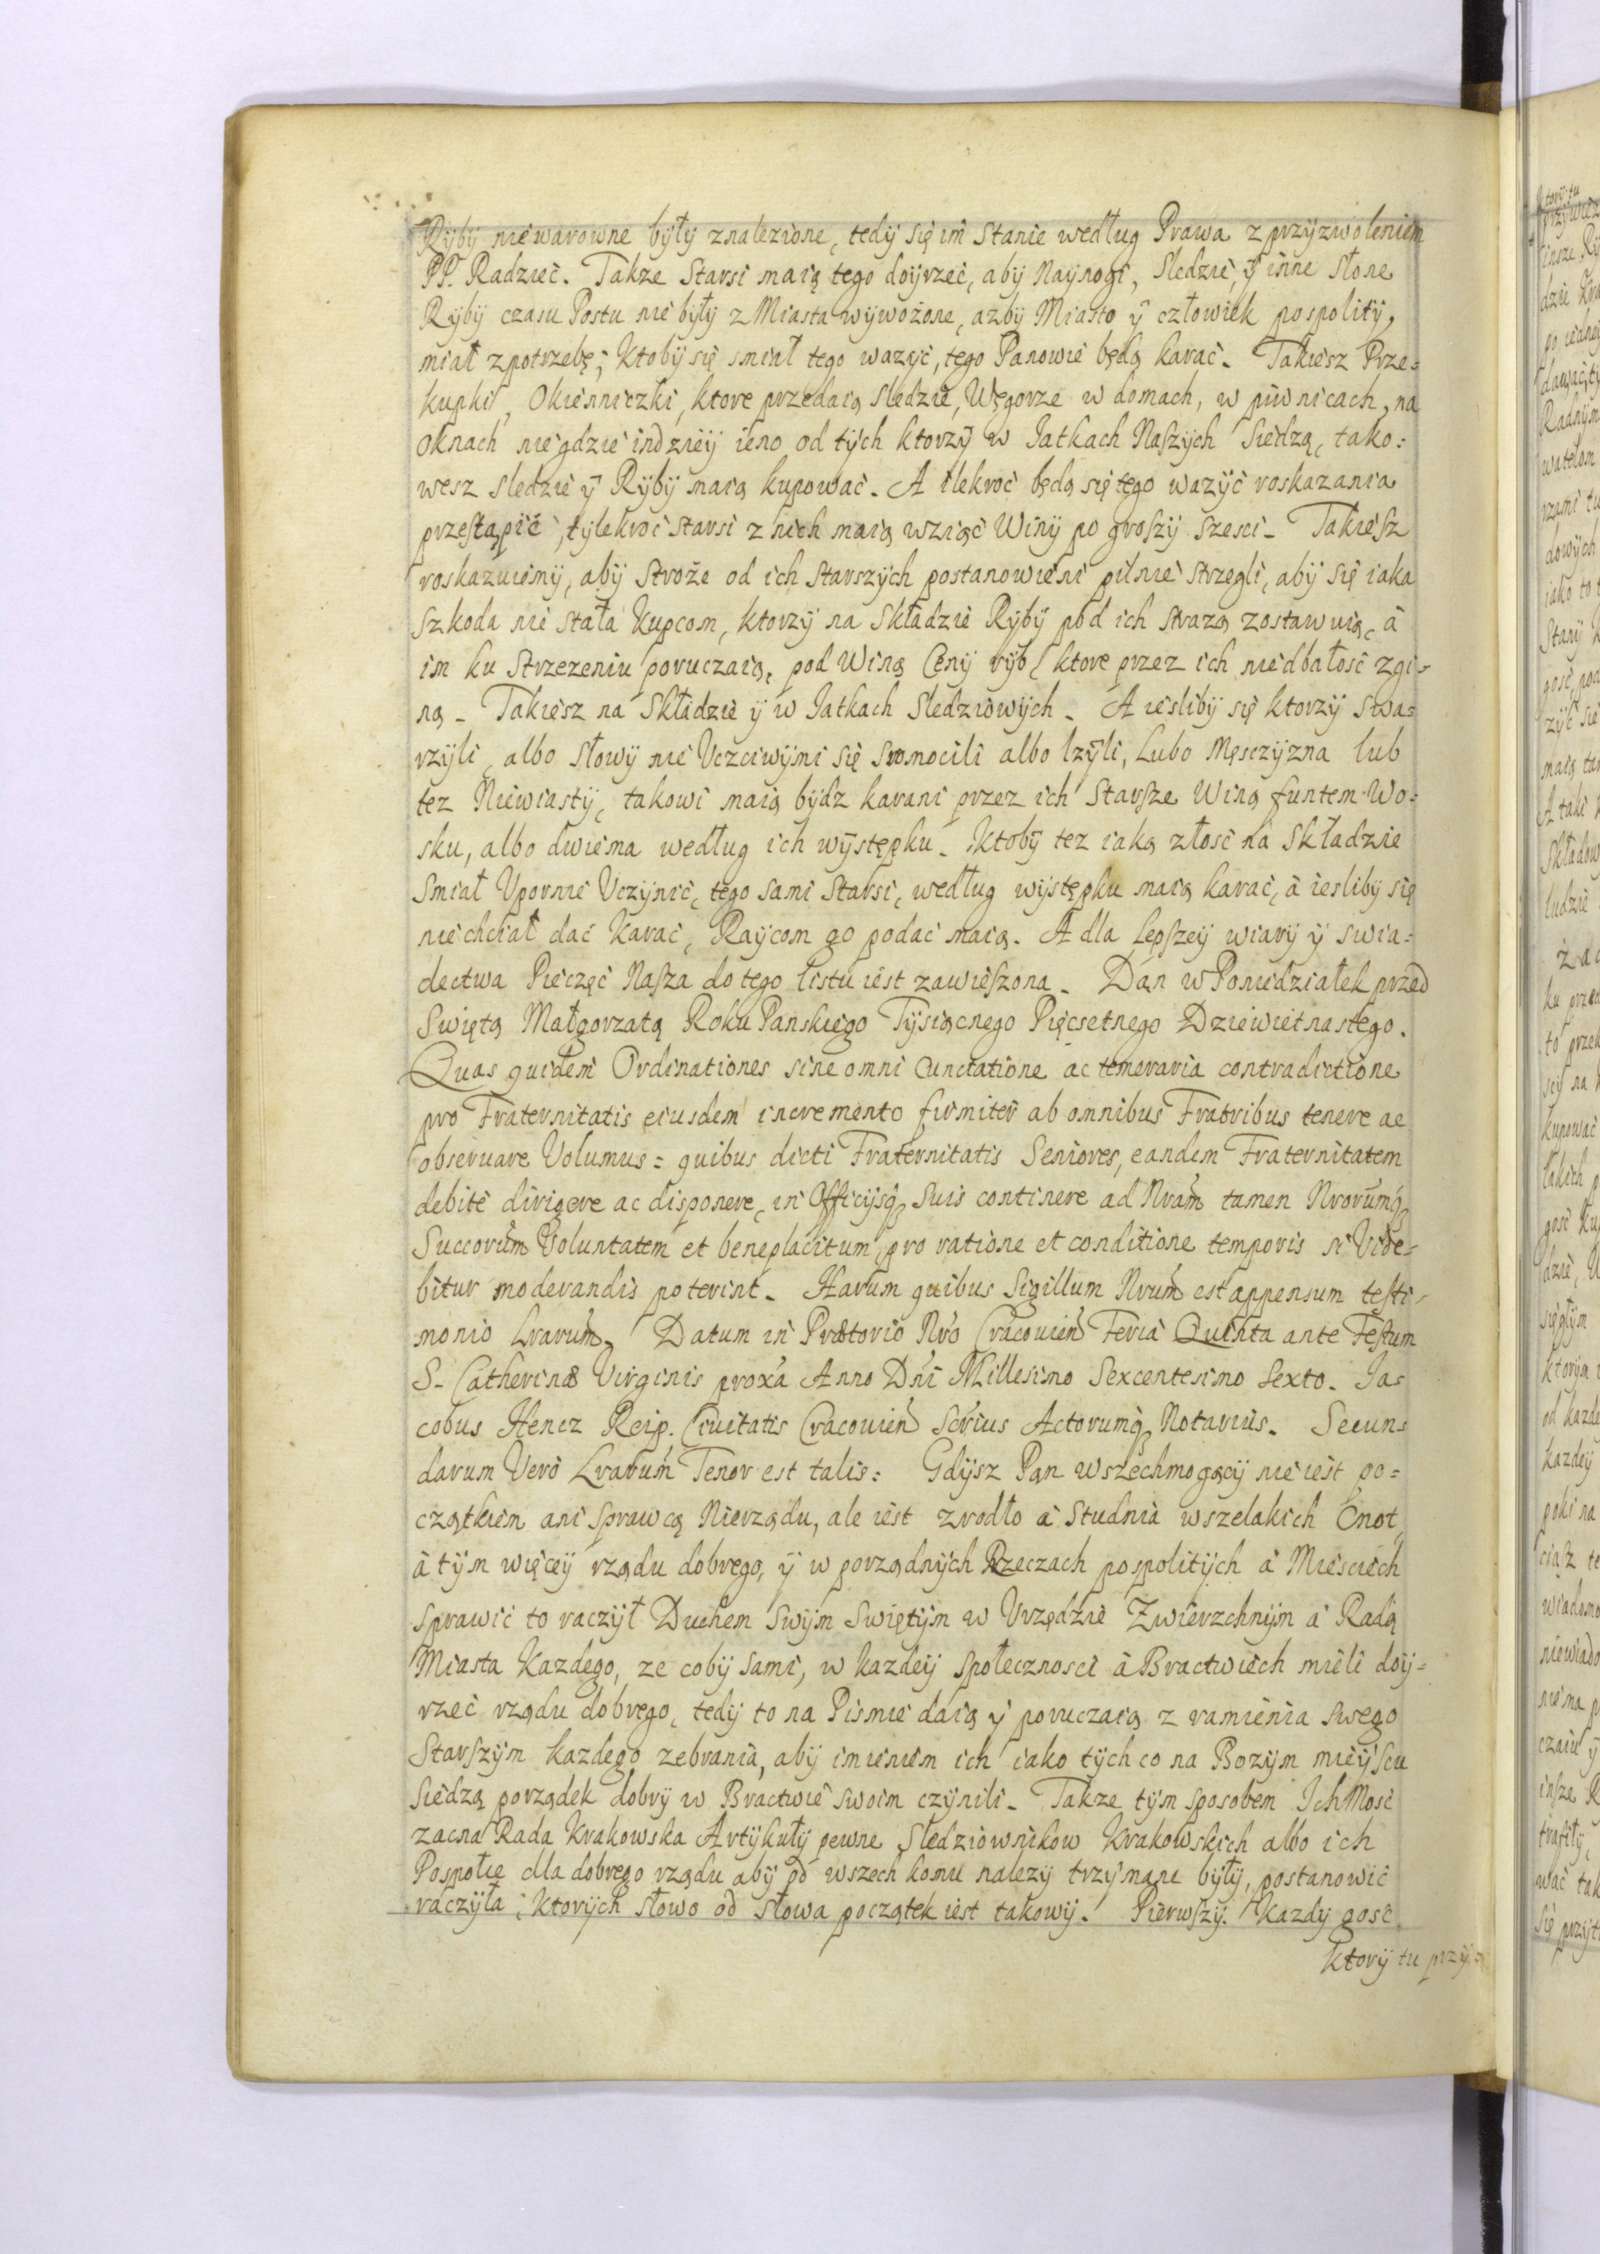 Ryby niewarowne były znalezione, tedy się im stanie według Prawa z przyzwoleniem
PP. Radziec. Takze Starsi maią tego doyrzeć, aby Naynogi, Sledzie, ÿ inne Słone
Ryby czasu Postu nie były z Miasta wywożone, azby Miasto ÿ człowiek pospolity,
miał zpotrzebę; Ktoby się smiał tego ważyć, tego Panowie będą karać. Takiesz Prze=
kupki, Okienniczki, ktore przedaią Sledzie, Węgorze w domach, w piwnicach, na
Oknach niegdzie indzieÿ ieno od tych ktorzy w Jatkach Naszych Siedzą, tako=
wesz sledzie ÿ Ryby maią kupować. A ilekroć będą się tego wazyć roskazania
przestąpić, tylekroć starsi z nich maią wziąć Winy po groszy szesci. Takiesz
roskazuiemy, aby Stroże od ich Starszych postanowieni pilnie strzegli, aby się iaka
szkoda nie stała Kupcom, ktorzy na Składzie Ryby pod ich strazą zostawuią, à
im ku Strzezeniu poruczaią, pod Winą Ceny ryb, ktore przez ich niedbałość zgi=
ną. Takiesz na Składzie ÿ w Jatkach Sledziowych. A iesliby się ktorzy swa=
rzyli, albo słowy nie Vczciwymi się sromocili albo lzyli, Lubo Męsczyzna lub
tez Niewiasty, takowi maią bydz karani przez ich Starsze Winą funtem Wo=
sku, albo dwiema według ich występku. Ktoby tez iaką złość na Składzie
Smiał Vpornie Vczynić, tego sami Starsi, według występku maią karać, à iesliby się
niechciał dać karać, Raycom go podać maią. A dla lepszey wiary ÿ swia=
dectwa Pieczęć Nasza do tego listu iest zawieszona. Dan w Poniedziałek przed
Swiętą Małgorzatą Roku Panskiego Tysiącnego Pięcsetnego Dziewietnastego.
Quas quidem Ordinationes sine omni Cunctatione ac temeraria contradictione
pro Fraternitatis eiusdem incremento firmiter ab omnibus Fratribus tenere ac
obseruare Volumus: quibus dicti Fraternitatis Seniores, eandem Fraternitatem
debite dirigere ac disponere, in Officijsq; Suis continere ad Nram tamen Nrorumq;
Succorum Voluntatem et beneplacitum, pro ratione et conditione temporis si Vide=
bitur moderandis poterint. Harum quibus Sigillum Nrum est appensum testi=
monio Lrarum. Datum in Prætorio Nro Cracouien Feria Quinta ante Festum
S. Catherinæ Virginis proxa Anno Dni Millesimo Sexcentesimo Sexto. Ja=
cobus Hencz Reip. Ciuitatis Cracouien Scrius Actorumq; Notarius. Secun=
darum Vero Lrarum Tenor est talis: Gdysz Pan wszechmogący nie iest po=
czątkiem ani sprawcą Nierządu, ale iest zrodło a Studnia wszelakich Cnot,
à tym więcey rządu dobrego, ÿ w porządnych Rzeczach pospolitych à Miesciech
sprawić to raczył Duchem Swym Swiętym w Vrzędzie Zwierzchnym à Radą
Miasta Kazdego, ze coby sami, w kazdey społecznosci à Bractwiech mieli doy=
rzeć rządu dobrego, tedy to na Pismie daią ÿ poruczaią z ramienia swego
Starszym kazdego zebrania, aby imieniem ich iako tych co na Bozym mieyscu
siedzą porządek dobry w Bractwie swoim czynili. Takze tym sposobem IchMosc
zacna Rada Krakowska Artykuły pewne Sledziownikow Krakowskich albo ich
Pospolie dla dobrego rządu aby od wszech komu nalezy trzymane były, postanowić
raczyła; ktorych słowo od słowa początek iest takowy. Pierwszy. Kazdy gosc
ktory tu przy=